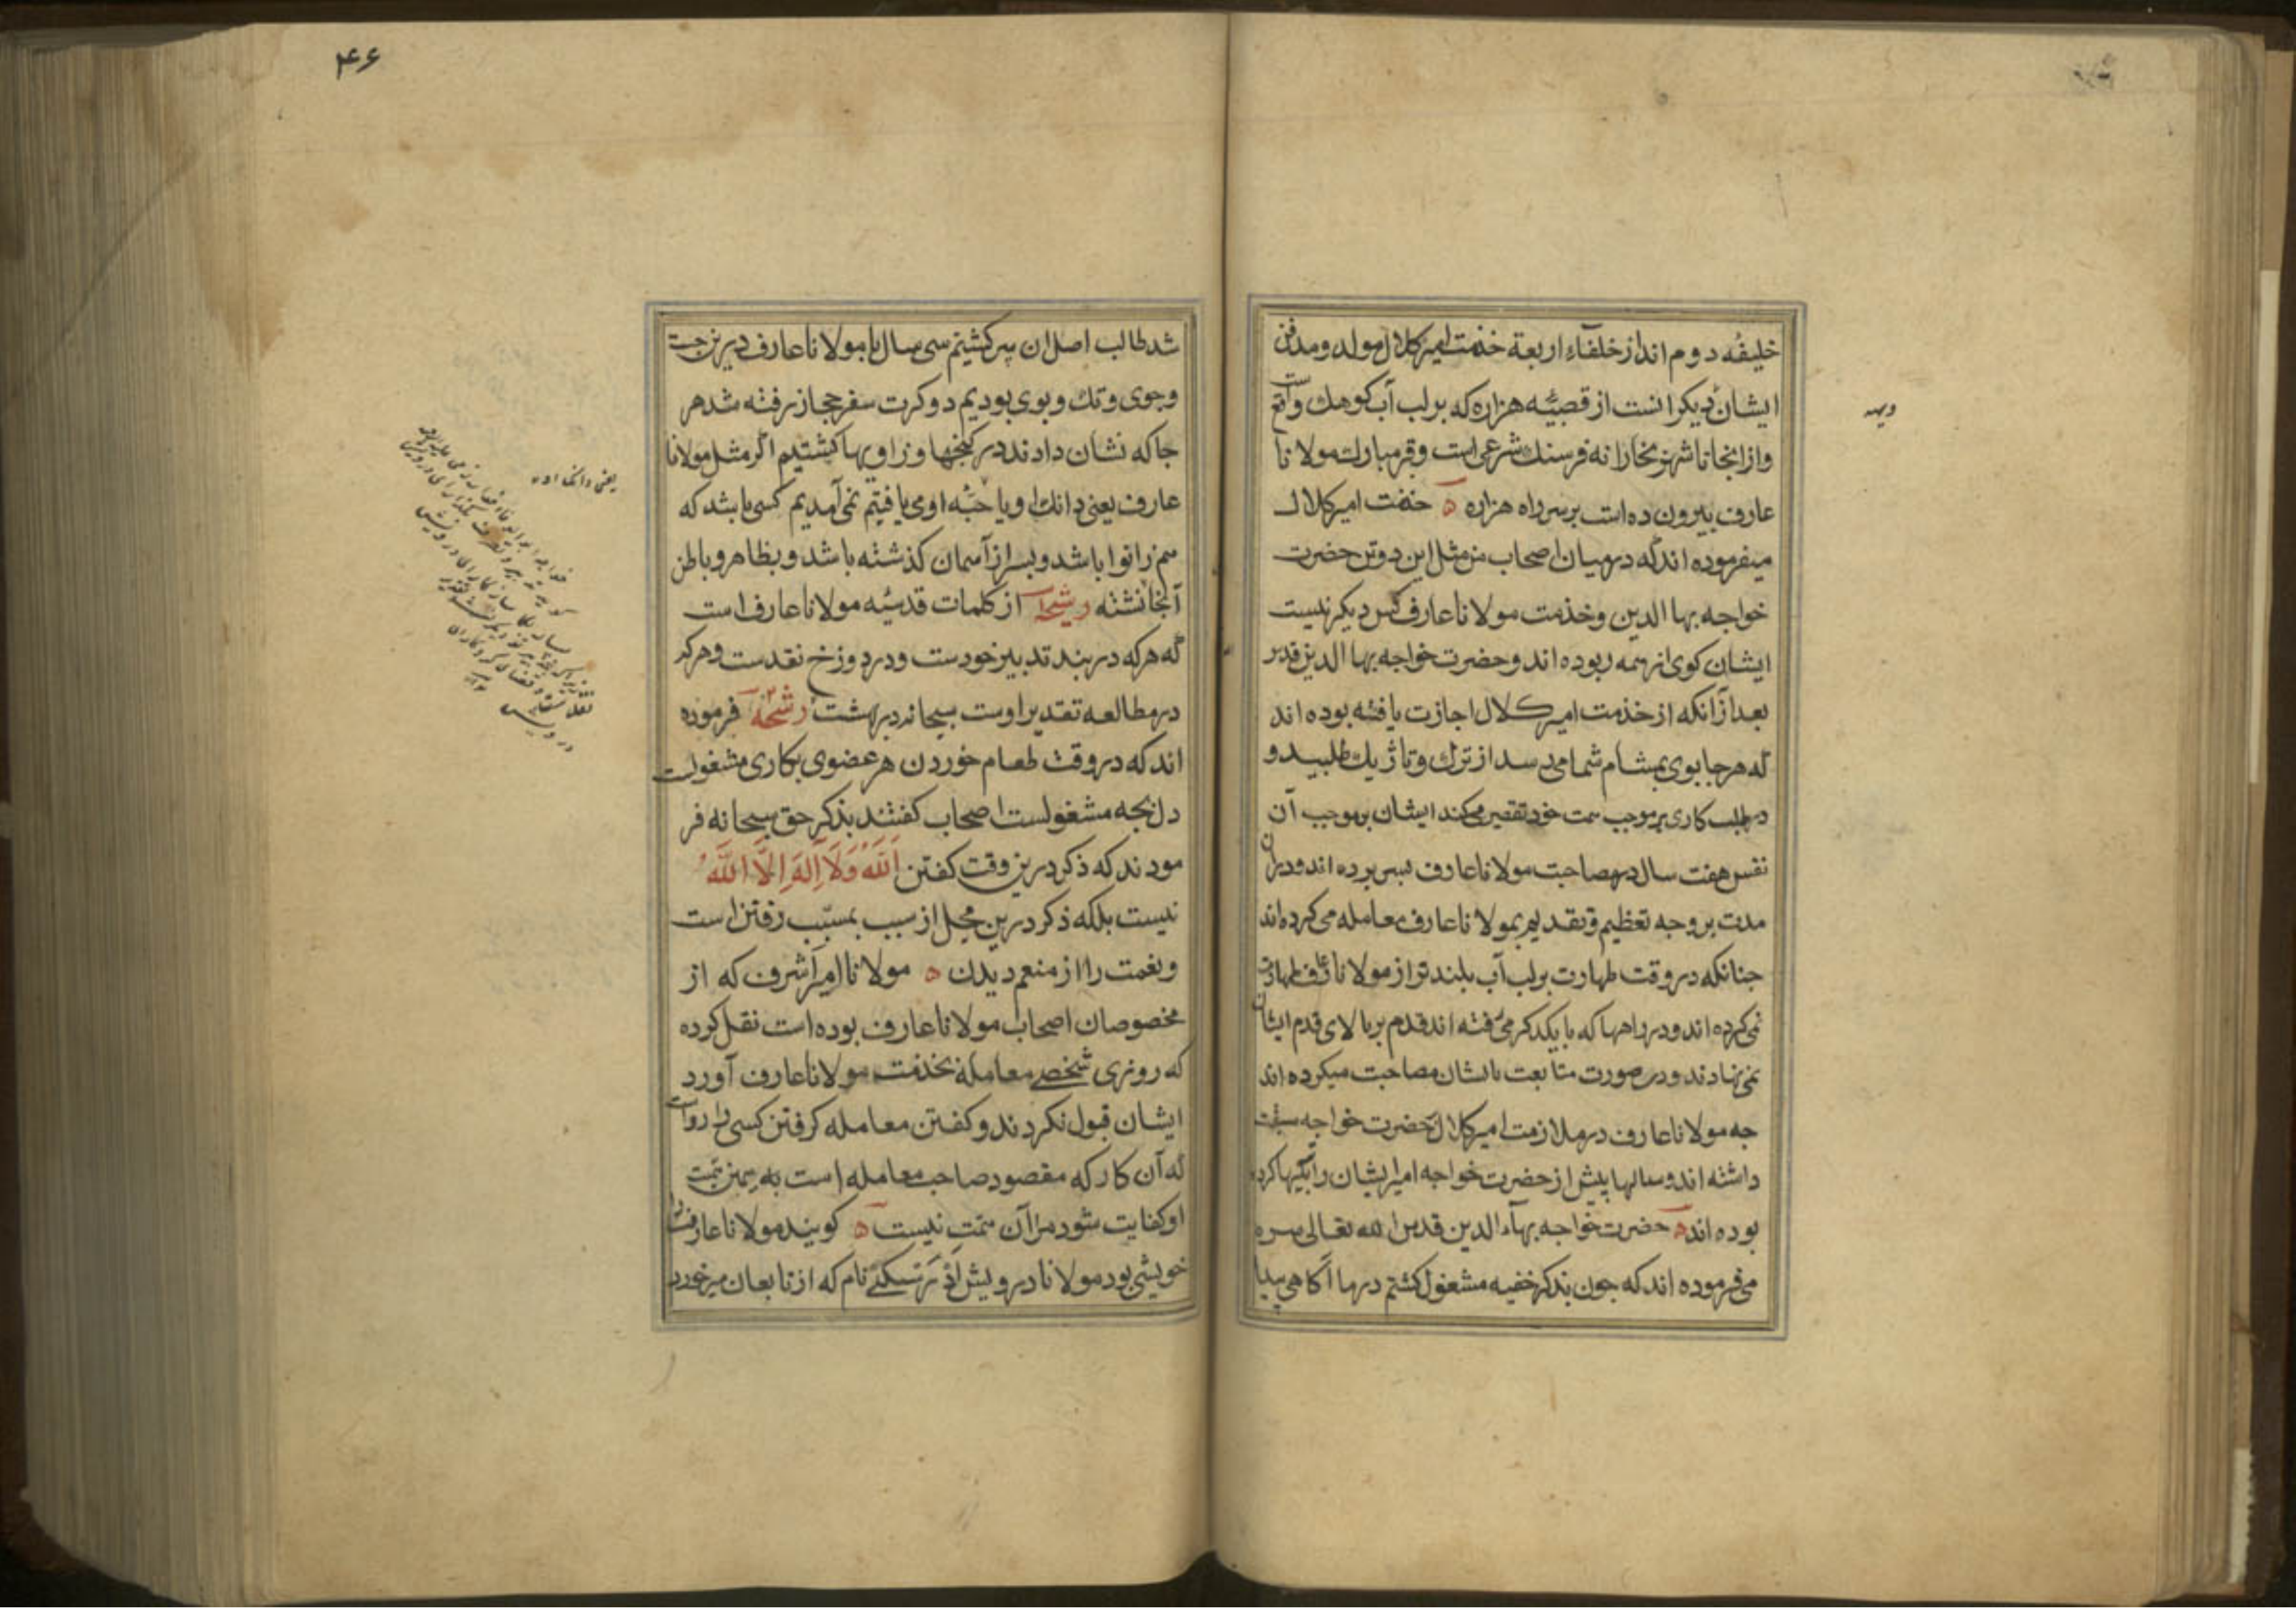 خلیفۀ دوم اند از خلفاء اربعة خذمت امیر کلال مولد و مدفن
ایشان دیکرانست از قصبۀ هزاره که بر لب آب کوهك واقع است
وازانجا تا شهر بخارا نه فرسنك شرعی است وقبر مبارك مولانا
عارف بیرون ده است بر سر راه هزاره ه خذمت امیر کلال
میفرموده اند که در میان اصحاب من مثل این دو تن حضرت
خواجه بها الدین وخذمت مولانا عارف کس دیکر نیست
ایشان کوی از همه ربوده اند وحضرت خواجه بها الدین قدس
بعد ازانکه از خذمت امیر کلال اجازت یافته بوده اند
که هر جا بوی بمشام شما می رسد از ترك و تاژیك طلبید و
در طلب کاری بر موجب همت خود تقصیر مکنید ایشان بموجب آن
نفس هفت سال در مصاحبت مولانا عارف بسر برده اند ودران
مدت بر وجه تعظیم وتقدیم بمولانا عارف معامله می کرده اند
جنانکه در وقت طهارت بر لب آب بلند تر از مولانا عارف طهارت
نمی کرده اند ودر راهها که با یکدکر می رفته اند قدم بر بالای قدم ایشان
نمی نهادند ودر صورت متابعت با ایشان مصاحبت میکرده اند
جه مولانا عارف در ملازمت امیر کلال حضرت خواجه سبقت
داشته اند وسالها پیش از حضرت خواجه امیر ایشان را
بوده اند ه حضرت خواجه بهاء الدین قدس الله تعالی سره
می فرموده اند که جون بذکر خفیه مشغول کشتم در ما آکاهی پیدا
دیهه
۴۶
شد طالب اصل ان سر کشتیم سی سال با مولانا عارف درین جست
وجوی وتك وبوی بودیم دو کرت سفر حجاز رفته شد هر
جا که نشان دادند در کنجها و زاویها کشتیم اکر مثل مولانا
عارف یعنی دانك او یا حبۀ او می یافتیم نمی آمدیم کسی باشد که
هم زانو با باشد وبسر از آسمان کذشته باشد وبظاهر وباطن
آنجا نشسته رشحه از کلمات قدسیه مولانا عارف است
که هر که در بند تدبیر خودست ودر دوزخ نقدست وهر که
در مطالعه تقدیر اوست سبحانه در بهشت رشحه فرموده
اند که در وقت طعام خوردن هر عضوی بکاری مشغولست
دل بجه مشغولست اصحاب کفتند بذکر حق سبحانه فر
مودند که ذکر درین وقت کفتن اَللّٰهُ وَلَا اِلٰهَ اِلَّا اللّٰهُ
نیست بلکه ذکر درین محل از سبب بمسبّب رفتن است
ونعمت را از منعم دیدن ه مولانا امیر اشرف که از
مخصوصان اصحاب مولانا عارف بوده است نقل کرده
که روزی شخصی معامله بخذمت مولانا عارف آورد
ایشان قبول نکردند وکفتن معامله کرفتن کسی را رواست
که آن کار که مقصود صاحب معامله است به یمن همت
او کفایت شود مرا آن همت نیست ه کویند مولانا عارف را
خویشی بود مولانا درویش نام که از تابعان میر خورد
یعنی دانکا او